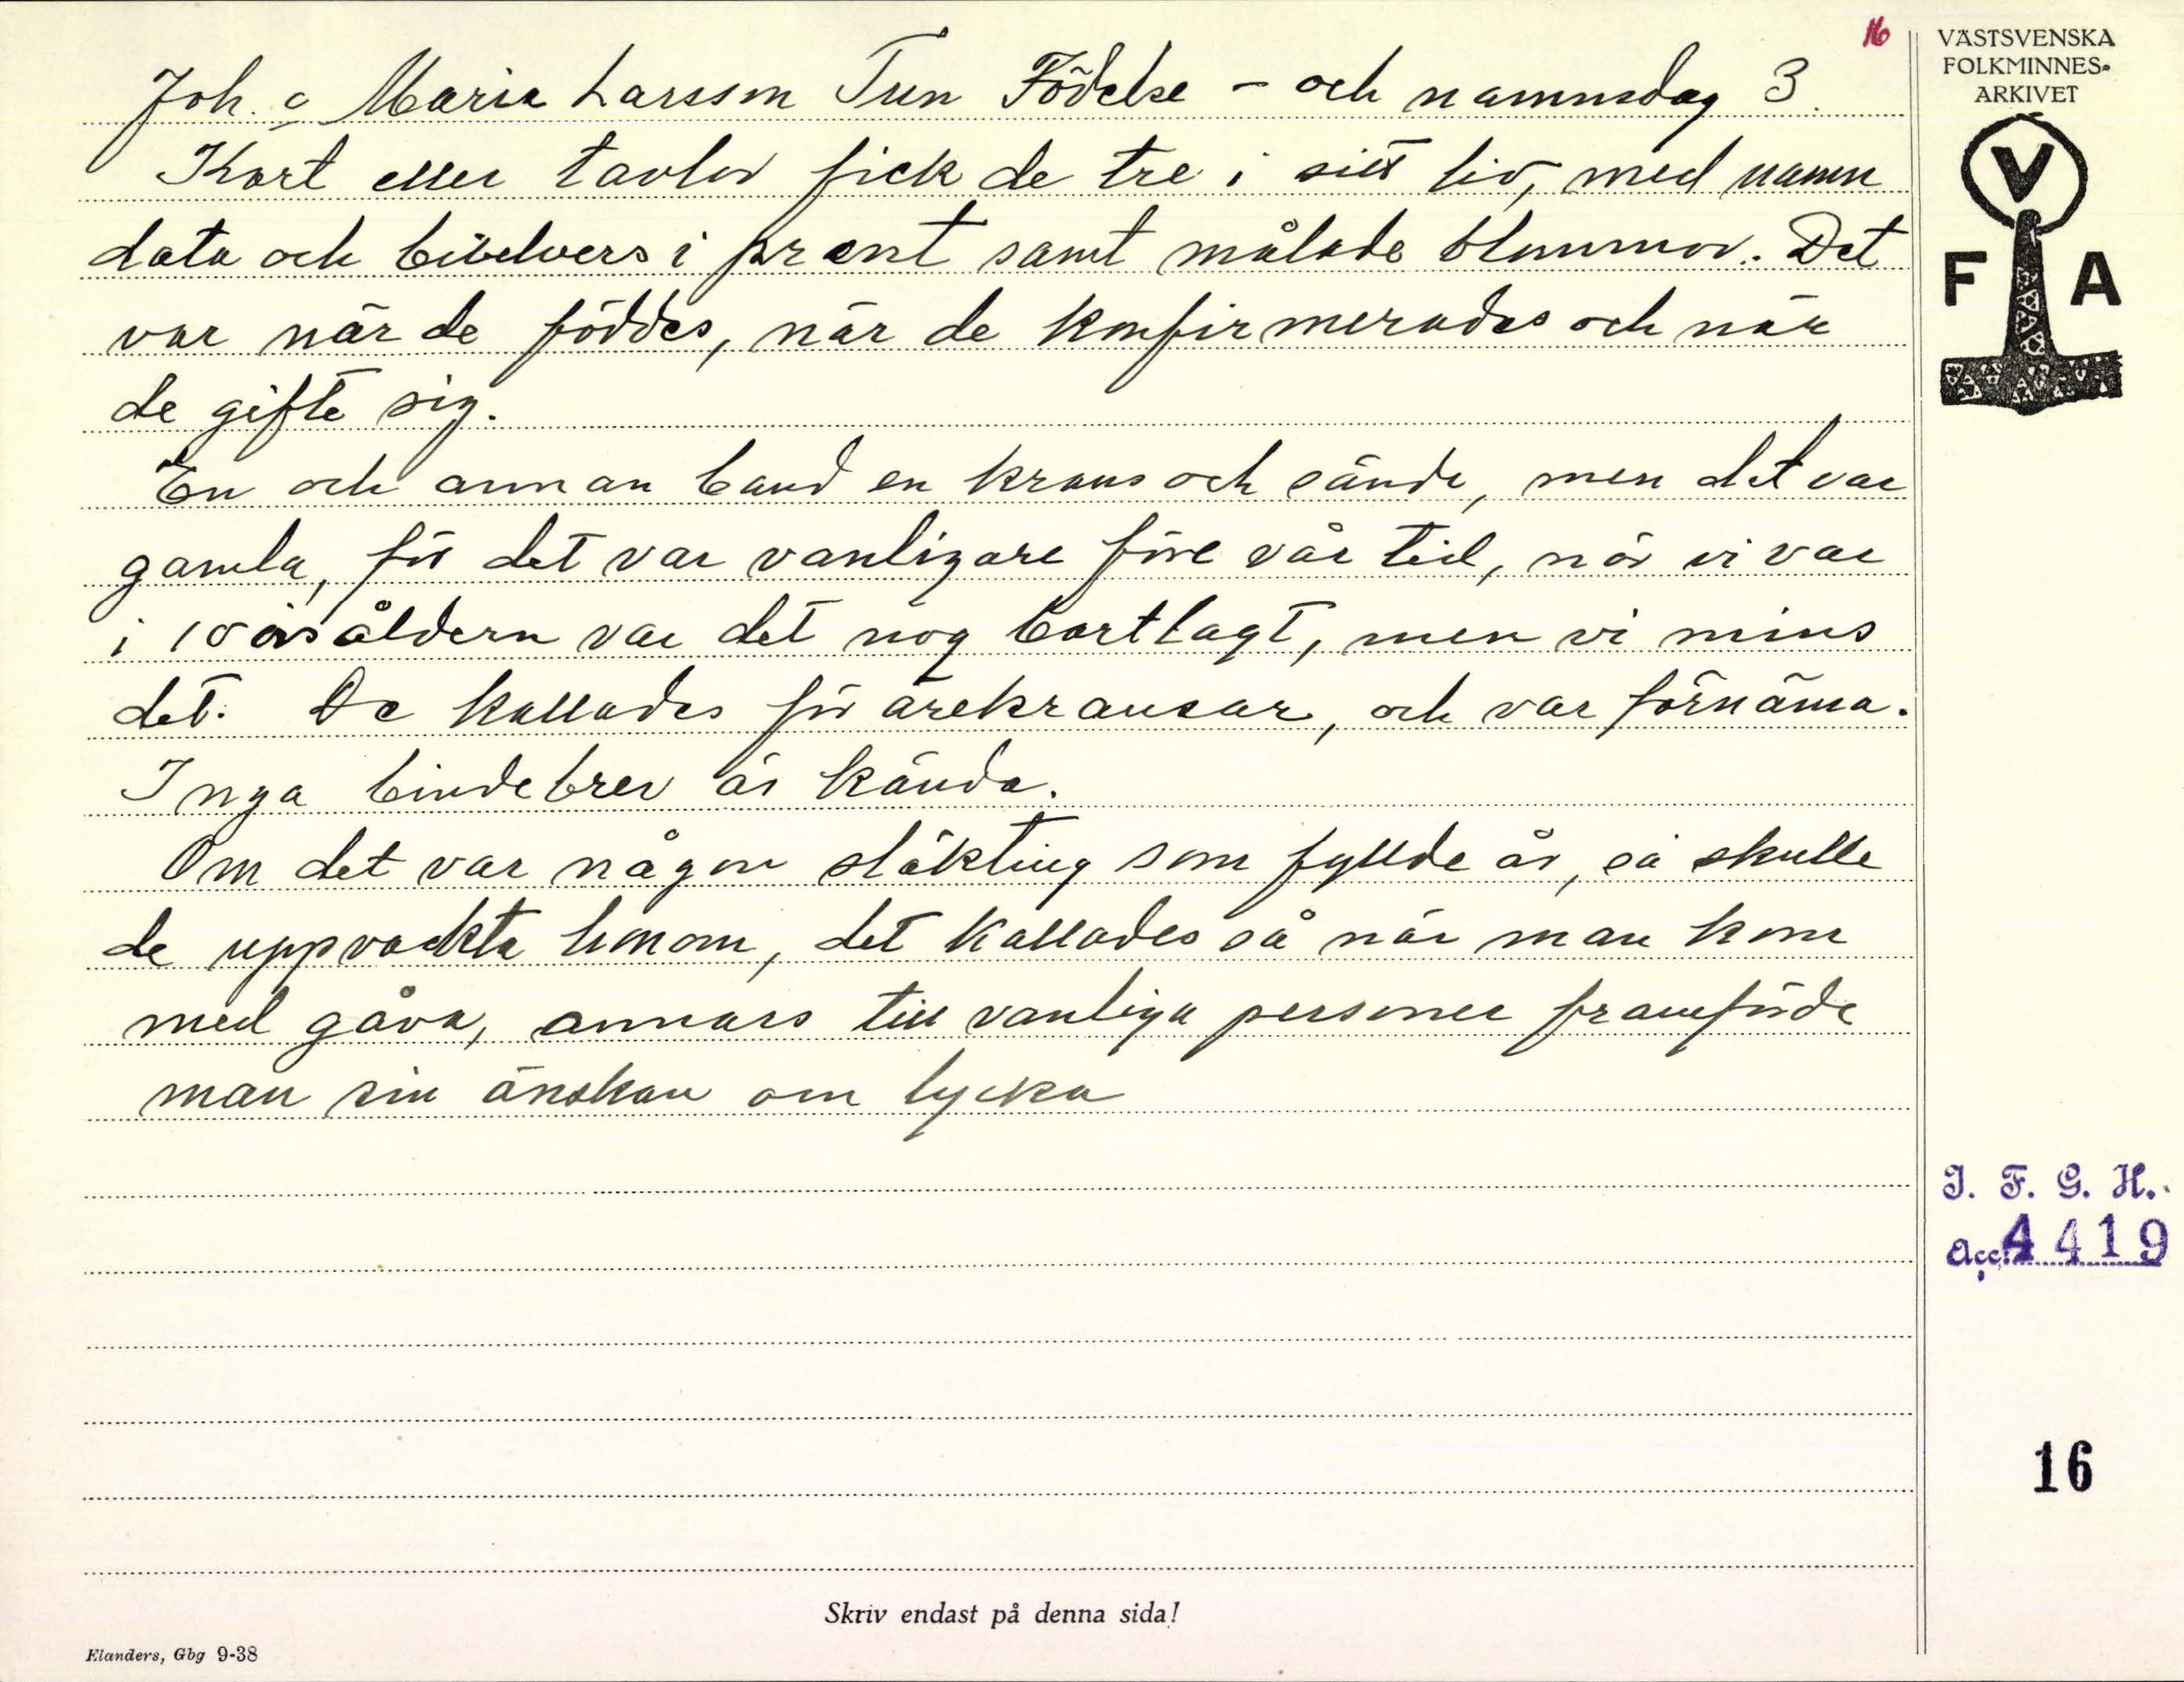 16
Joh. o Maria Larsson Tun Födelse - och namnsdag 3.
Kort eller tavlor fick de tre i sitt liv, med namn
data och bibelvers i prent samt målade blommor. Det
var när de föddes, när de konfirmerades och när
de gifte sig.
En och annan band en krans och sände, men det var
gamla, för det var vanligare före vår tid, när vi var
i 10 årsåldern var det nog bortlagt, men vi mins
det. De kallades för ärekransar, och var förnäma.
Inga bindebrev är kända.
Om det var någon släkting som fyllde år, så skulle
de uppvackta honom, det kallades så när man kom
med gåva, annars till vanliga personer framförde
man sin önskan om lycka
VÄSTSVENSKA
FOLKMINNES-
ARKIVET
V
F A
I. F. G. H.
Acc. 4419
16
Skriv endast på denna sida!
Elanders, Gbg 9-38